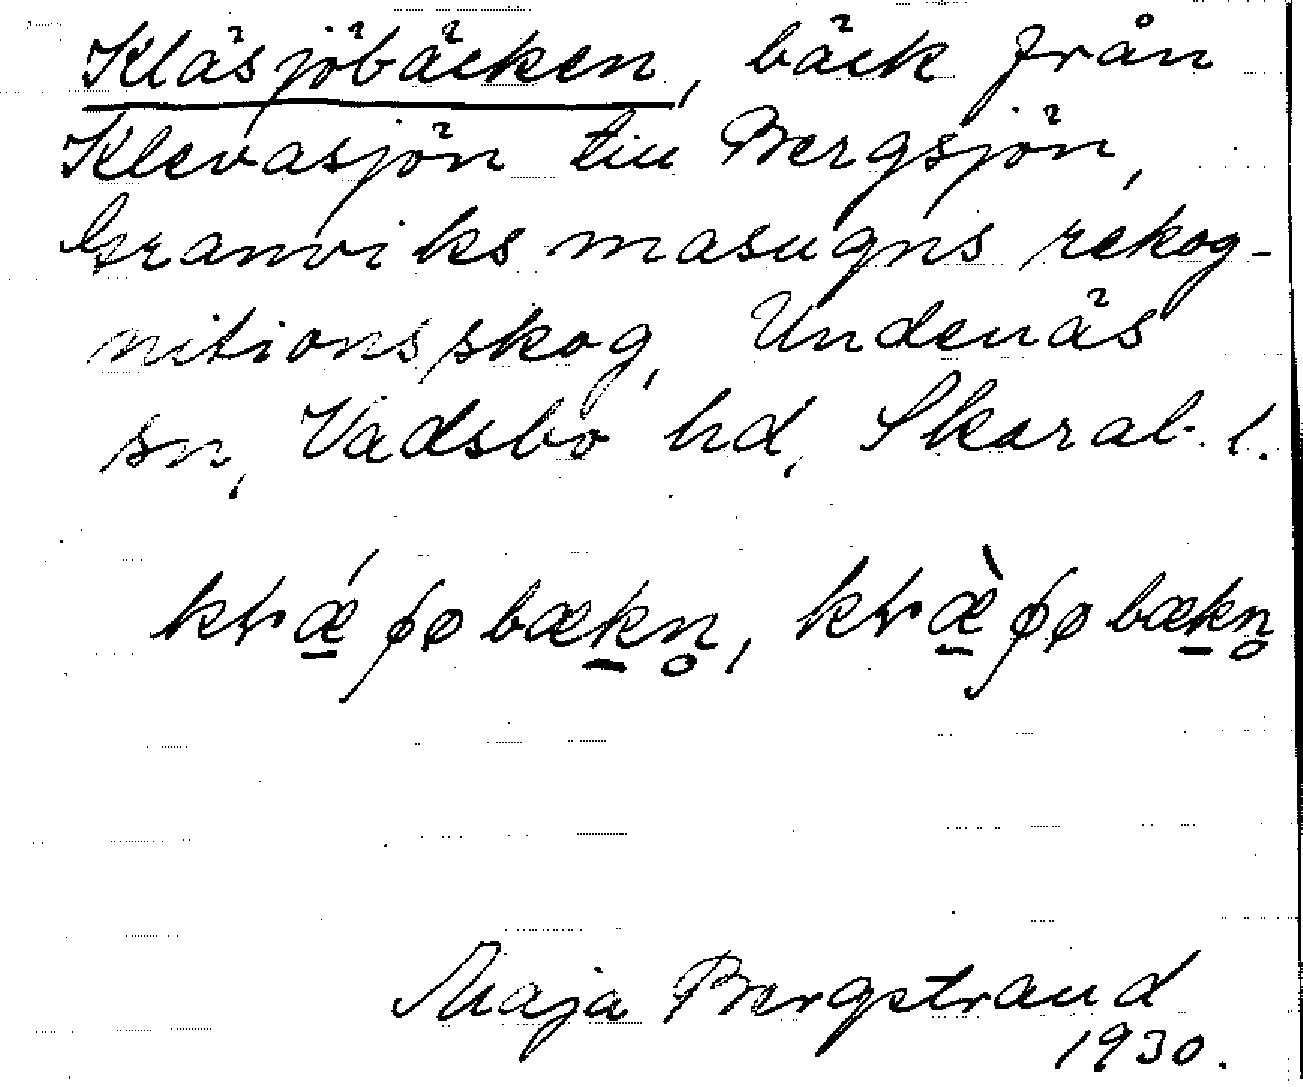 Kläsjöbäcken, bäck från
Klevasjön till Bergsjön,
Granviks masugns rekog-
nitionsskog, Undenäs
sn, Vadsbo hd, Skarab. l.
Maja Bergstrand
1930.